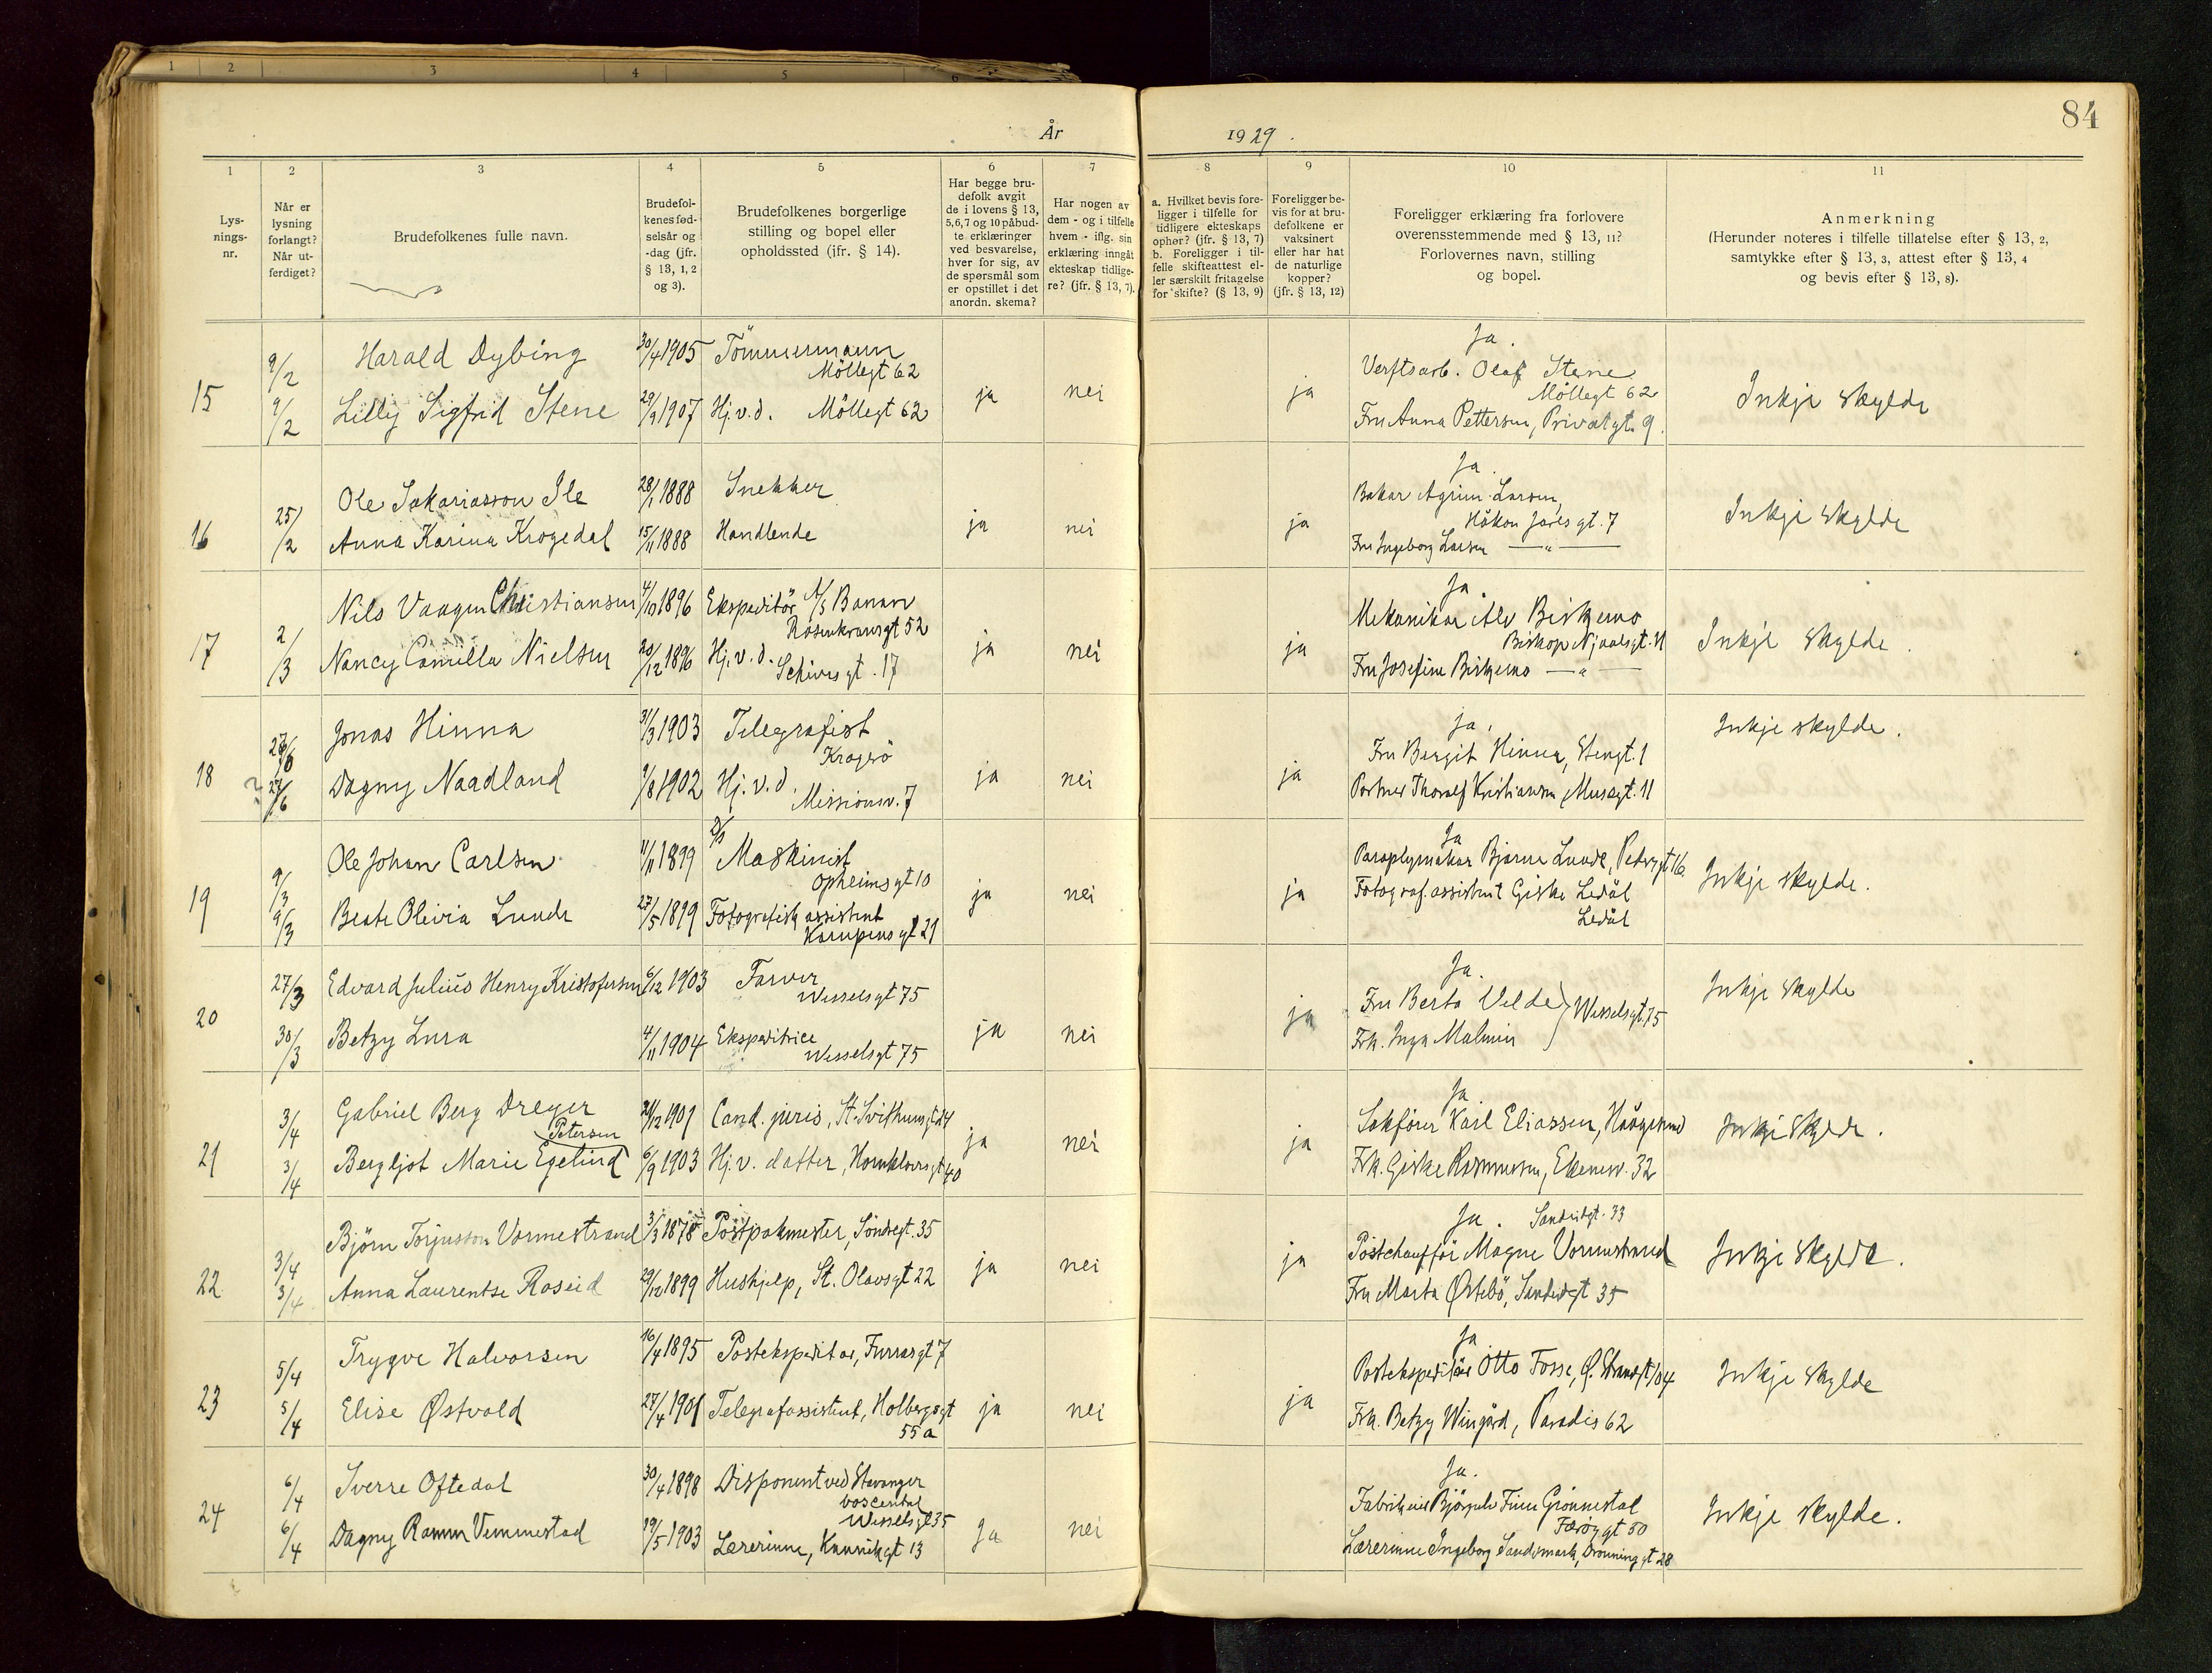 1 2 3 4 5 6
84
År 1929.
1 2 3 4 5 6 7 8 9 10 11
Lys-
nings-
nr.
Når er
lysning
forlangt?
Når ut-
ferdiget?
Brudefolkenes fulle navn.
Brudefol-
kenes fød-
selsår og
-dag (jfr.
§ 13, 1, 2
og 3).
Brudefolkenes borgerlige
stilling og bopel eller
opholdssted (jfr. § 14).
Har begge bru-
defolk avgit
de i lovens § 13,
5,6,7 og 10 påbud-
te erklæringer
ved besvarelse,
hver for sig, av
de spørsmål som
er opstillet i det
anordn. skema?
Har nogen av
dem - og i tilfelle
hvem - iflg. sin
erklæring inngåt
ekteskap tidlige-
re? (jfr. § 13, 7).
a. Hvilket bevis fore-
ligger i tilfelle for
tidligere ekteskaps
ophør? (jfr. § 13, 7)
b. Foreligger i til-
felle skifteattest el-
ler særskilt fritagelse
for skifte? (§ 13, 9)
Foreligger be-
vis for at bru-
defolkene er
vaksinert
eller har hat
de naturlige
kopper?
(jfr. § 13, 12)
Foreligger erklæring fra forlovere
overensstemmende med § 13, 11?
Forlovernes navn, stilling
og bopel.
Anmerkning
(Herunder noteres i tilfelle tillatelse efter § 13, 2,
samtykke efter § 13, 3, attest efter § 13, 4
og bevis efter § 13, 8).
15
9/2
9/2
Harald Dybing
Lilly Sigfrid Stene
30/4 1905
29/9 1907
Tömmermann
Möllegt 62
Hj.v.d. Möllegt 62
ja
nei
ja
Ja.
Verftsarb. Olaf Stene
Möllegt 62
Fru Anna Pettersen, Privatgt. 9.
Inkje skylde
16
25/2
Ole Sakariasson Ile
Anna Karina Krogedal
28/1 1888
15/11 1888
Snekker
Handlende
ja
nei
ja
Ja.
Bakar Agrim Larsen,
Håkon Jarls gt. 7
Fru Ingeborg Larsen — „ —
Inkje skylde
17
2/3
Nils Vaagen Christiansen
Nancy Camilla Nielsen
4/10 1896
20/12 1896
Ekspeditör A/S Banan
Rosenkransgt 52
Hj.v.d. Schivesgt. 17
ja
nei
ja
Ja.
Mekanikar Alv Birkemo
Biskop Njaalsgt. 11
Fru Josefine Birkemo — „ —
Inkje skylde.
18
27/6
Jonas Hinna
Dagny Naadland
31/3 1903
1/8 1902
Telegrafist
Kragerö
Hj.v.d. Missionsv. 7
ja
nei
ja
ja.
Fru Bergit Hinna, Stengt. 1
Portner Thoralf Kristiansen, Musegt. 11
Inkje skylde.
19
9/3
9/3
Ole Johan Carlsen
Beate Olivia Lunde
11/11 1899
27/5 1899
D/S
Maskinist
Opheimsgt 10
Fotografisk assistent
Karupensgt 21
ja
nei
ja
Ja
Paraplymakar Bjarne Lunde, Pedersgt 16
Fotograf. assistent Giske Ledål
Ledål
Inkje skylde.
20
27/3
30/3
Edvard Julius Henry Kristofersen
Betzy Lura
6/12 1903
4/11 1904
Farver
Wesselsgt 75
Ekspeditrice
Wesselsgt 75
ja
nei
ja
Ja.
Fru Berta Velde } Wesselsgt. 75
Frk. Inga Malmin
Inkje skylde
21
3/4
3/4
Gabriel Berg Dreyer
Petersen
Bergljot Marie Egelind
1901
6/9 1903
Cand. juris, St. Svithunsgt 24
Hj.v. datter, Hornklovesgt 40
ja
nei
ja
Ja.
Sakförer Karl Eliassen, Haugesund
Frk. Giske Rasmussen, Ekenesv. 32
Inkje skylde.
22
3/4
3/4
Björn Torjusson Vormestrand
Anna Laurentse Roseid
3/3 1878
29/12 1899
Postpakmester, Söndregt. 35
Hushjelp, St. Olavsgt 22
ja
nei
ja
Ja. Sandeidgt. 33
Postchaufför Magne Vormestrand
Fru Marta Østebö, Sandeidgt 35
Inkje skylde.
23
5/4
5/4
Trygve Halvorsen
Elise Østvold
16/4 1895
27/4 1901
Postekspeditør, Furrasgt 7
Telegrafassistent, Holbergsgt
55 a
ja
nei
ja
Ja
Postekspeditör Otto Fosse, Ø. Strandgt 104
Frk. Betzy Wingård, Paradis 62
Inkje skylde
24
6/4
6/4
Sverre Oftedal
Dagny Ramm Vemmestad
30/4 1898
19/5 1903
Disponent ved Stavanger
Wesselsgt 35
Lærerinne, Kannikgt 13
Ja
nei
Ja.
Finn Grönnestad
Færöygt 50
Lærerinne Ingeborg Sandsmark, Dronningt 28
Inkje skylde.